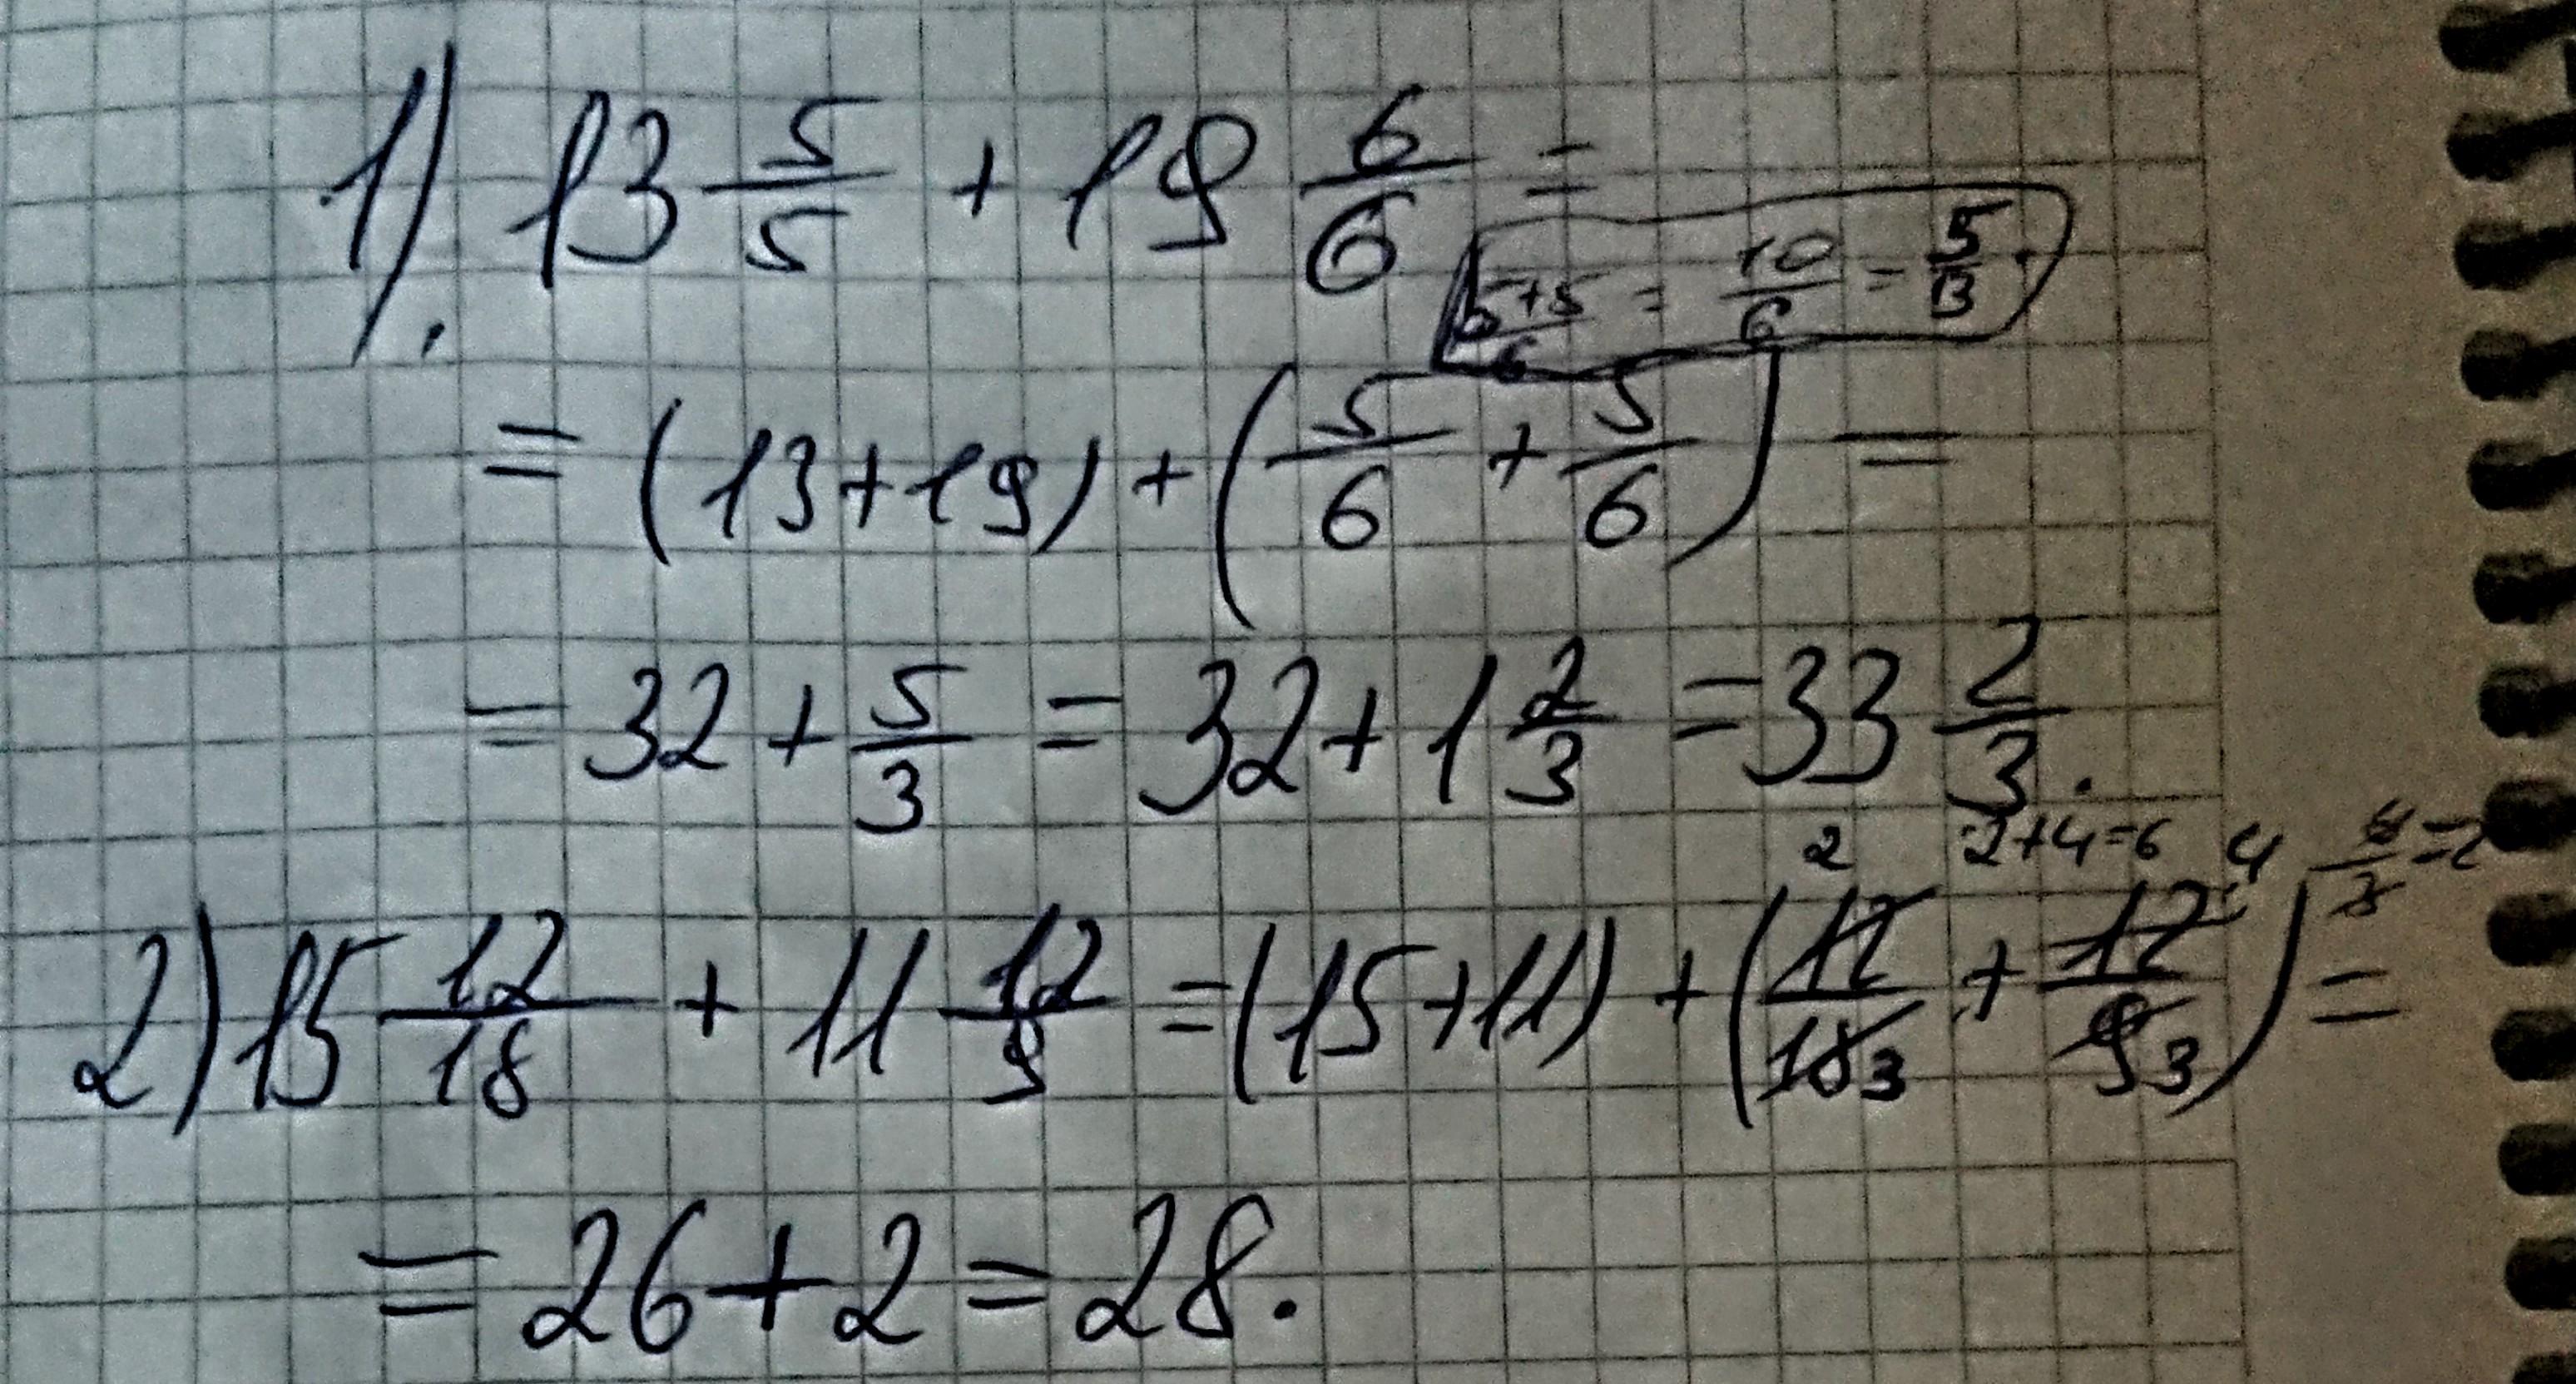 1). 13 5/5 + 19 6/6 =
(5+5)/6 = 10/6 = 5/3.
= (13+19) + (5/6 + 5/6) =
= 32 + 5/3 = 32 + 1 2/3 = 33 2/3.
2 2+4=6 4 6/3=2
2) 15 12/18 + 11 12/9 = (15+11) + (12/18 3 + 12/9 3) =
= 26 + 2 = 28.